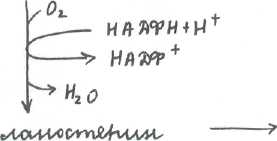 O₂
НАДФН+Н⁺
НАДФ⁺
H₂O
ланостерин